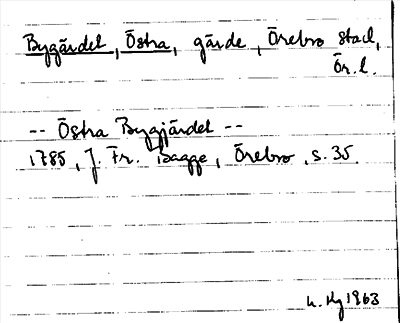 Bygärdet, Östra, gärde, Örebro stad,
Ör. l.
-- Östra Bygjärdet --
1785, J. Fr. Bagge, Örebro, s. 35.
1963